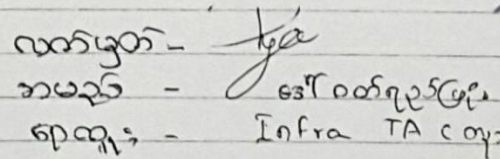 လက်မှတ် -
အမည် - ဒေါ်ဝတ်ရည်ဖြိုး
ရာထူး - Infra TA (